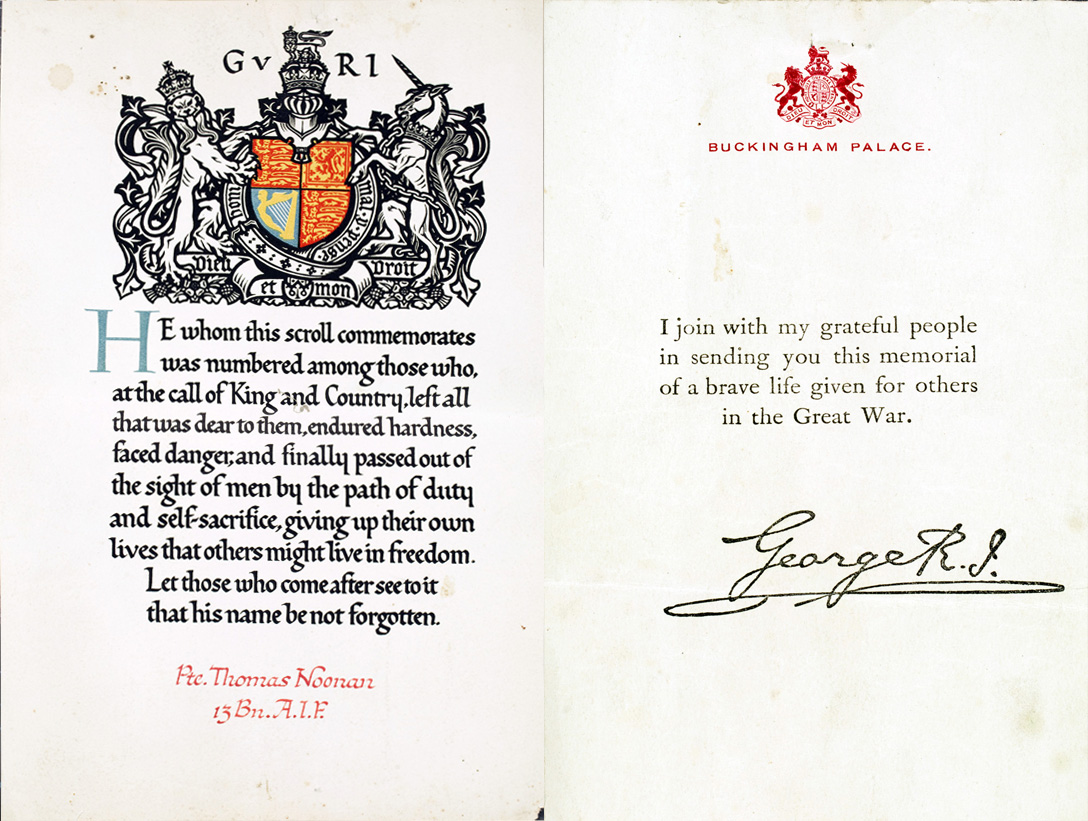 GV RI
Honi
mal y pense
Dieu
Droit
et mon
HE whom this scroll commemorates
was numbered among those who,
at the call of King and Country, left all
that was dear to them, endured hardness,
faced danger, and finally passed out of
the sight of men by the path of duty
and self-sacrifice, giving up their own
lives that others might live in freedom.
Let those who come after see to it
that his name be not forgotten.
Pte. Thomas Noonan
13 Bn. A.I.F.
DIEU ET MON DROIT
BUCKINGHAM PALACE.
I join with my grateful people
in sending you this memorial
of a brave life given for others
in the Great War.
George R.I.